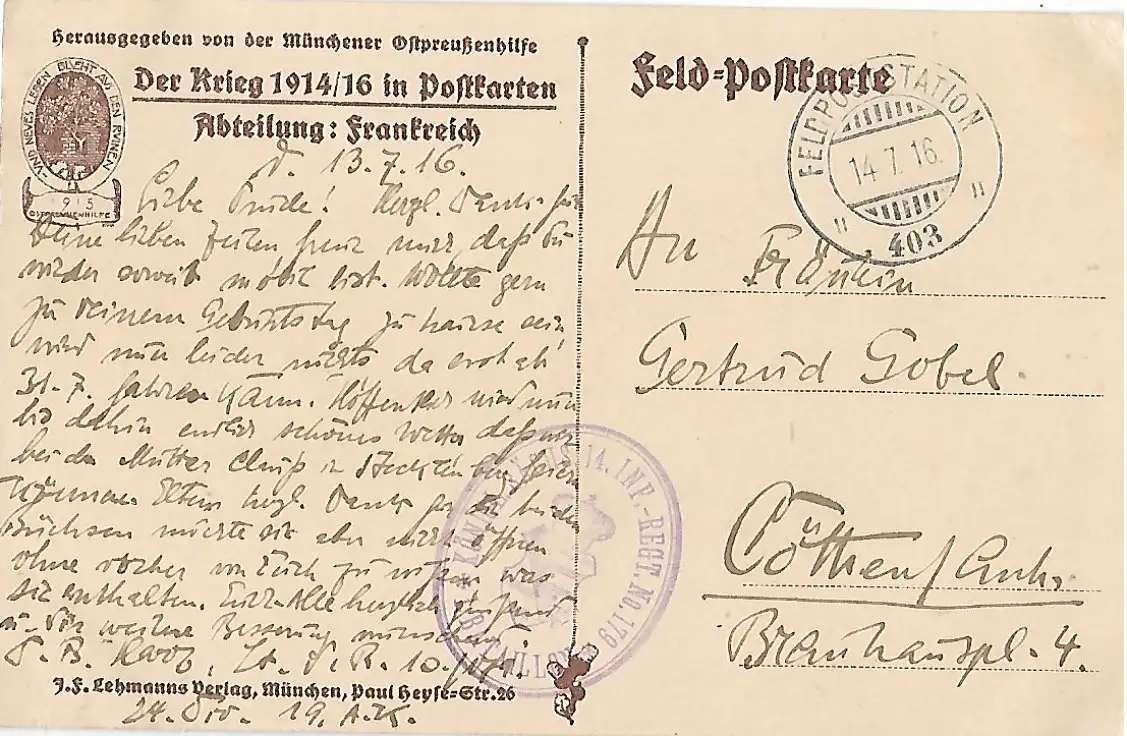 Herausgegeben von der Münchener Ostpreußenhilfe
Der Krieg 1914/16 in Postkarten
Abteilung: Frankreich
UND NEUES LEBEN BLUEHT AUS DEN RUINEN
1915
OSTPREUSSENHILFE
d. 13.7.16.
Liebe Trude! Herzl. Dank für
Deine lieben Zeilen freue mich, daß Du
wieder soweit mobil bist. Wollte gern
zu Deinem Geburtstag zu hause sein,
wird nun leider nichts da erst ab
31.7. fahren kann. Hoffentlich wird nun
bis dahin endlich schönes Wetter daß wir
bei der Mutter
Eltern herzl. Dank für die beiden
Büchsen möchte sie aber nicht öffnen
ohne vorher von Euch zu wissen was
sie enthalten. Euch Alle herzlich grüßend
u. Dir weitere Besserung wünschend
D. B. Lt. d. R. 10./179.
J. F. Lehmanns Verlag, München, Paul Heyse-Str. 26
24. Div. 19. A.K.
Feld-Postkarte
FELDPOSTSTATION
14.7.16.
403
An Fräulein
Gertrud Gobel.
Cöthen/Anh.
Brauhauspl. 4.
14. INF.-REGT. No. 179
BATAILLON